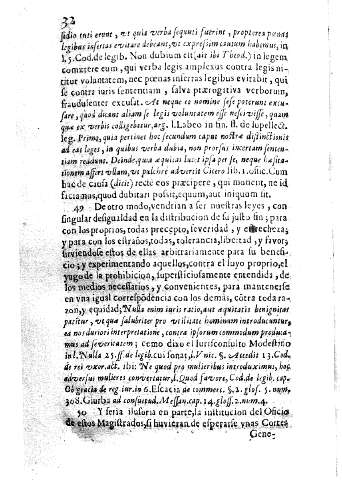 32
sidio tuti erunt, ut quia verba sequuti fuerint, propterea pœnas
legibus insertas evitare debeant, ut expressim cautum habemus, in
l. 5. Cod. de legib. Non dubium est (ait ibi Theod.) in legem
comitere eum, qui verba legis amplexus contra legis ni-
titur voluntatem, nec pœnas insertas legibus evitabit, qui
se contra iuris sententiam, salva prærogitiva verborum,
fraudulenter excusat. At neque eo nomine sese poterunt excu-
sare, quod dicant aliam se legis voluntatem esse nescivisse, quam
quæ ex verbis collegebatur, arg. l. Labeo in fin. ff. de supellect.
leg. Primò, quia pertinet hoc secundum caput nostræ distinctionis
ad eas leges, in quibus verba dubia, non prorsus incertam senten-
tiam reddunt. Deinde, quia æquitas lucet ipsa per se, neque hæsita-
tionem affert ullam, ut pulchrè advertit Cicero lib. 1. offic. Cum
hac de causa (dicit) rectè eos præcipere, qui monent, ne id
faciamus, quod dubitari possit, equum, aut iniquum sit.
49 De otro modo, vendrian à ser nuestras leyes, con
singular desigualdad en la distribucion de su justo fin; para
con los proprios, todas precepto, severidad, y estrecheza;
y para con los estraños, todas, tolerancia, libertad, y favor,
sirviendose estos de ellas arbitrariamente para su benefi-
cio; y experimentando aquellos, contra el suyo proprio, el
yugo de la prohibicion, supersticiosamente entendida, de
los medios necessarios, y convenientes, para mantenerse
en vna igual correspōdencia con los demàs, cōtra toda ra-
zon, y equidad; Nulla enim iuris ratio, aut æquitatis benignitas
patitur, ut quæ salubriter pro utilitate hominum introducuntur,
ea nos duriori interpretatione, contra ipsorum commodum produca-
mus ad severitatem; como dixo el Iurisconsulto Modestino
in l. Nulla 25. ff. de legib. cui sonat, l. Vnic. §. Accedit 13. Cod.
de rei vxor. act. ibi: Ne quod pro mulieribus introduximus, hoc
adversus mulieres convertatur, l. Quod favore, Cod. de legib. cap.
Ob gratia de reg. iur. in 6. Escacia de commerc. §. 2. glos. 5. num.
308. Giurba ad consuetud. Messan. cap. 14. gloss. 2. num. 4.
50 Y seria ilusoria en parte, la institucion del Oficio
de estos Magistrados, si huvieran de esperarse vnas Cortes
Gene-